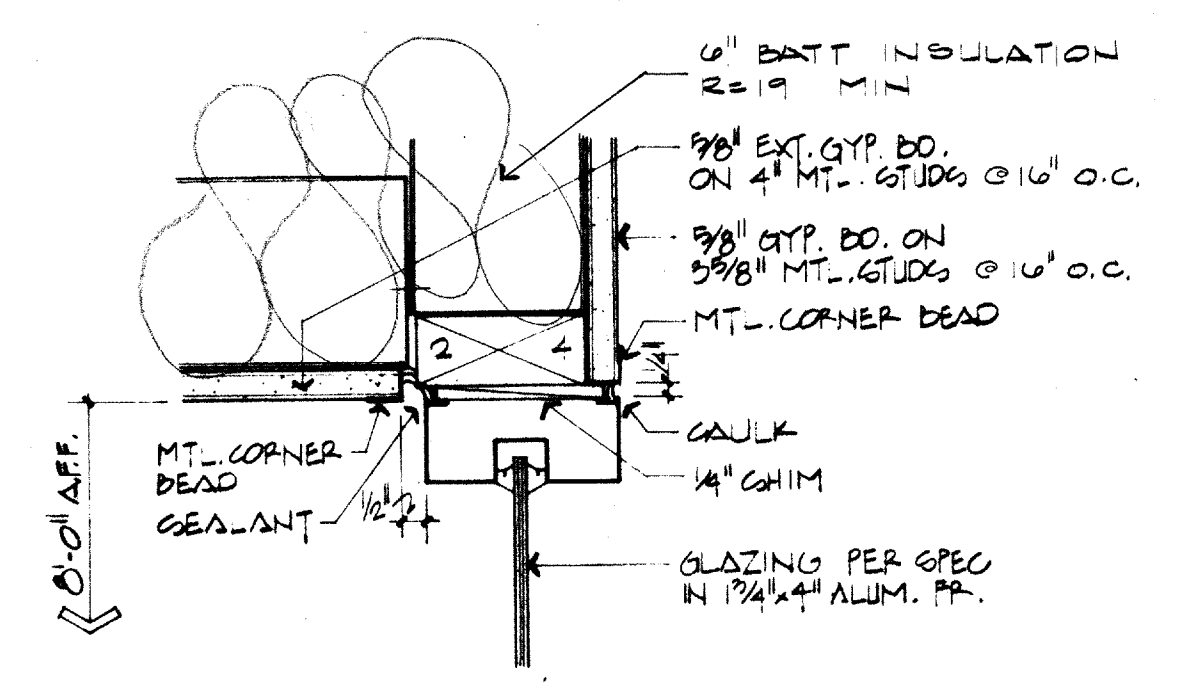 6" BATT INSULATION
R=19 MIN
5/8" EXT. GYP. BD.
ON 4" MTL. STUDS @ 16" O.C.
5/8" GYP. BD. ON
3 5/8" MTL. STUDS @ 16" O.C.
MTL. CORNER BEAD
2 4
1/4"
CAULK
1/4" SHIM
MTL. CORNER
BEAD
SEALANT
1/2"
8'-0" A.F.F.
GLAZING PER SPEC
IN 1 3/4" x 4" ALUM. FR.